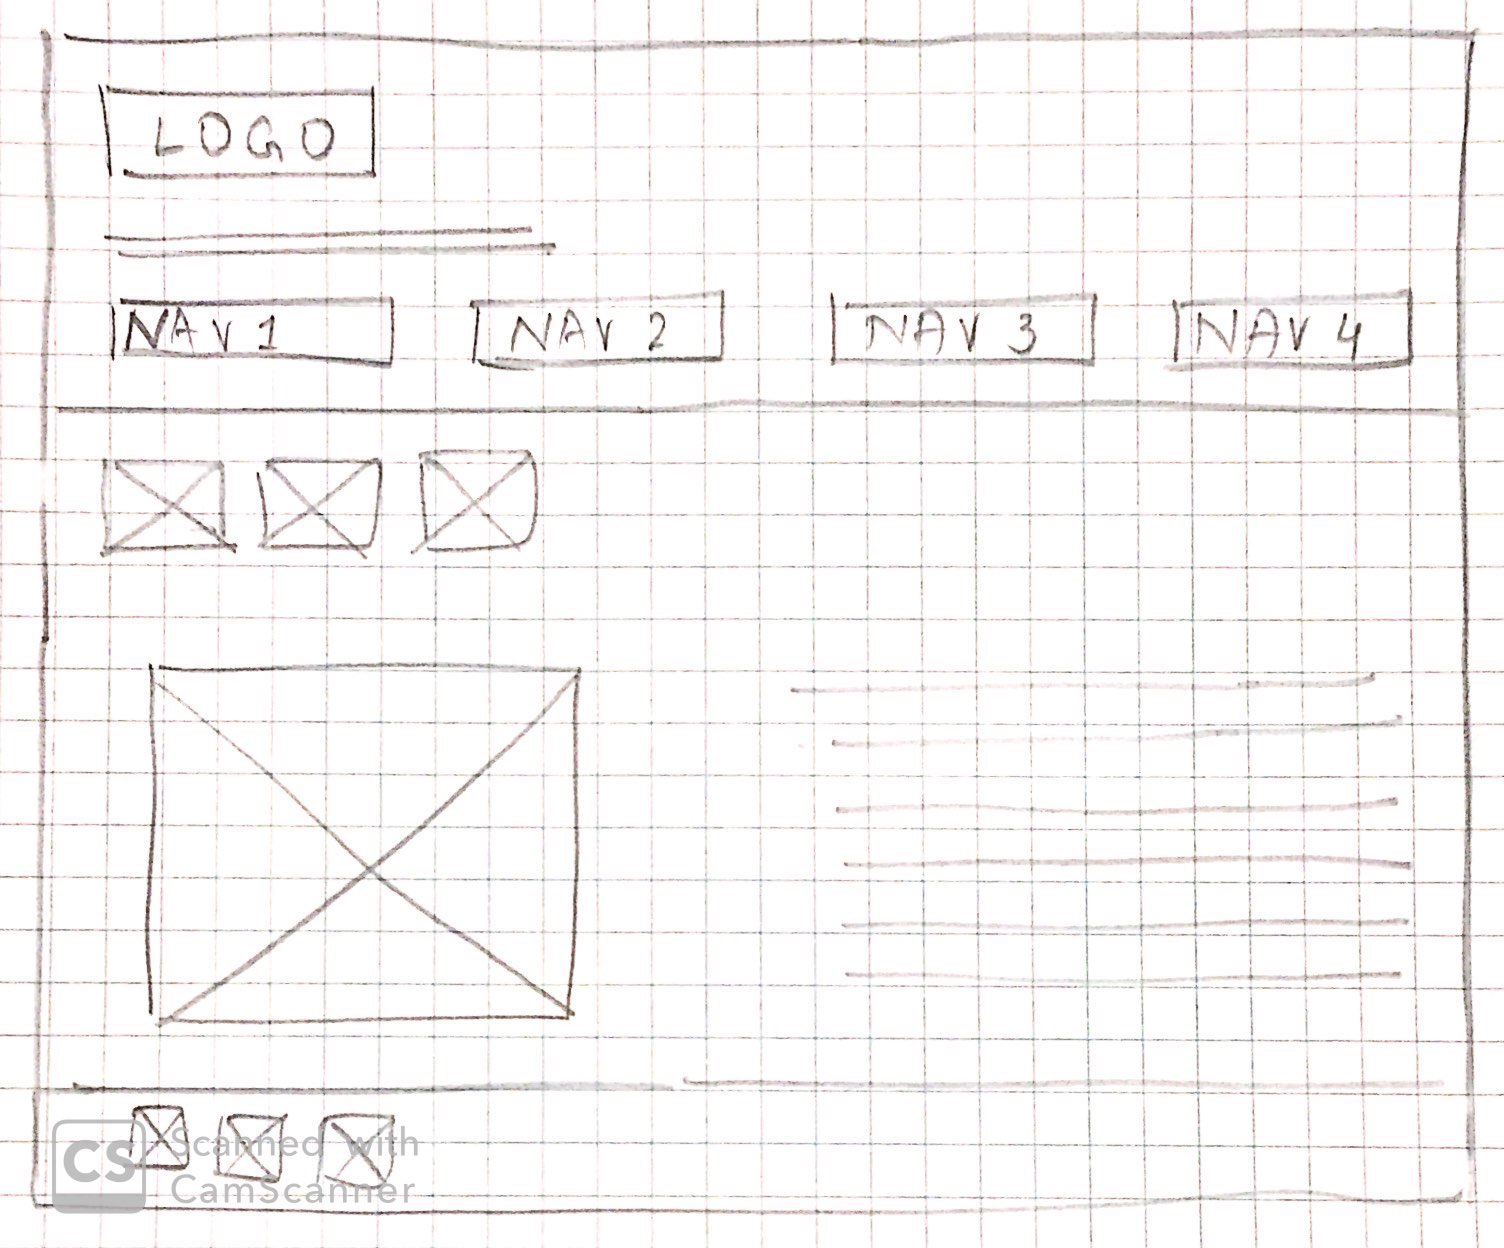 LOGO
NAV 1 NAV 2 NAV 3 NAV 4
CS Scanned with
CamScanner